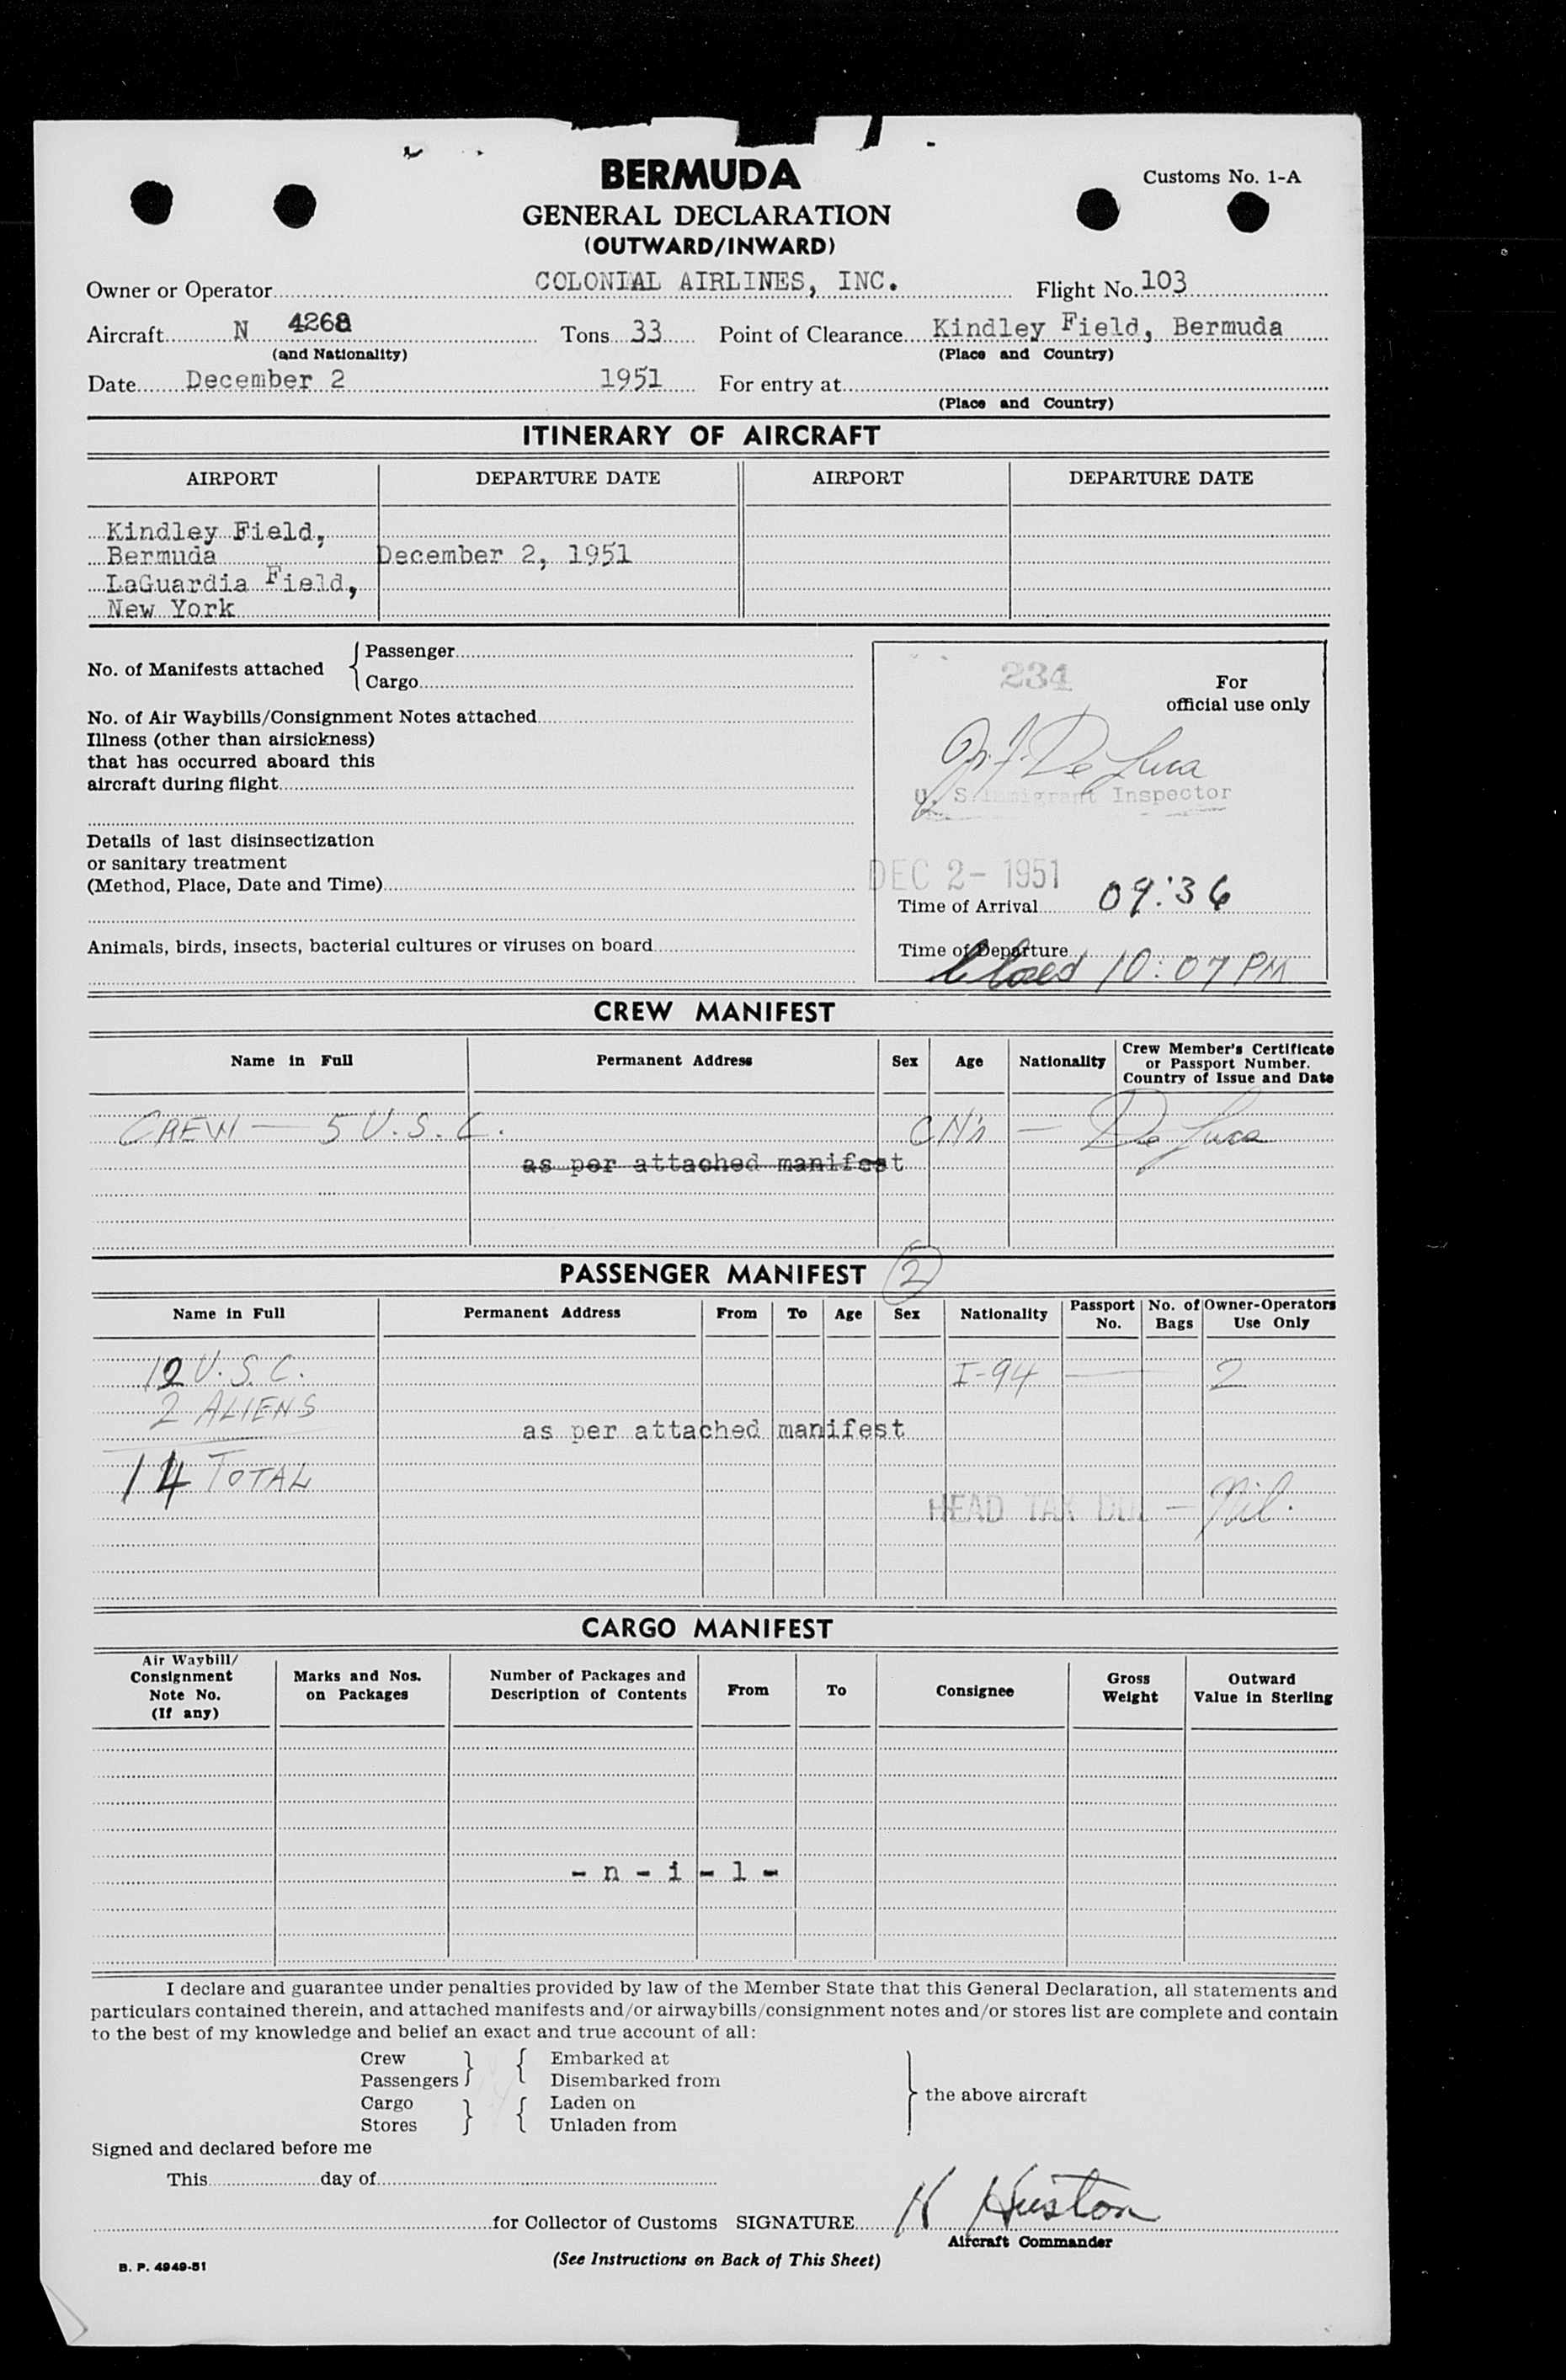 BERMUDA
Customs No. 1-A
GENERAL DECLARATION
(OUTWARD/INWARD)
Owner or Operator COLONIAL AIRLINES, INC. Flight No. 103
Aircraft N 4268 Tons 33 Point of Clearance Kindley Field, Bermuda
(and Nationality) (Place and Country)
Date December 2 1951 For entry at
(Place and Country)
ITINERARY OF AIRCRAFT
AIRPORT DEPARTURE DATE AIRPORT DEPARTURE DATE
Kindley Field,
Bermuda December 2, 1951
LaGuardia Field,
New York
No. of Manifests attached { Passenger
Cargo
No. of Air Waybills/Consignment Notes attached
Illness (other than airsickness)
that has occurred aboard this
aircraft during flight
Details of last disinsectization
or sanitary treatment
(Method, Place, Date and Time)
Animals, birds, insects, bacterial cultures or viruses on board
234
For
official use only
De Luca
U. S. Immigrant Inspector
DEC 2- 1951
Time of Arrival 09:36
Time of Departure
Closed 10:07 PM
CREW MANIFEST
Name in Full Permanent Address Sex Age Nationality Crew Member's Certificate
or Passport Number.
Country of Issue and Date
CREW — 5 U.S.C. — De Luca
as per attached manifest
PASSENGER MANIFEST 2
Name in Full Permanent Address From To Age Sex Nationality Passport No. No. of Bags Owner-Operators Use Only
12 U.S.C. I-94 — 2
2 ALIENS
as per attached manifest
14 TOTAL
HEAD TAX DUE — Nil.
CARGO MANIFEST
Air Waybill/
Consignment
Note No.
(If any)
Marks and Nos.
on Packages
Number of Packages and
Description of Contents
From To Consignee
Gross
Weight
Outward
Value in Sterling
- n - i - l -
I declare and guarantee under penalties provided by law of the Member State that this General Declaration, all statements and
particulars contained therein, and attached manifests and/or airwaybills/consignment notes and/or stores list are complete and contain
to the best of my knowledge and belief an exact and true account of all:
Crew } { Embarked at
Passengers Disembarked from
Cargo } { Laden on
Stores Unladen from
} the above aircraft
Signed and declared before me
This day of
for Collector of Customs SIGNATURE H Huston
Aircraft Commander
B. P. 4949-51
(See Instructions on Back of This Sheet)